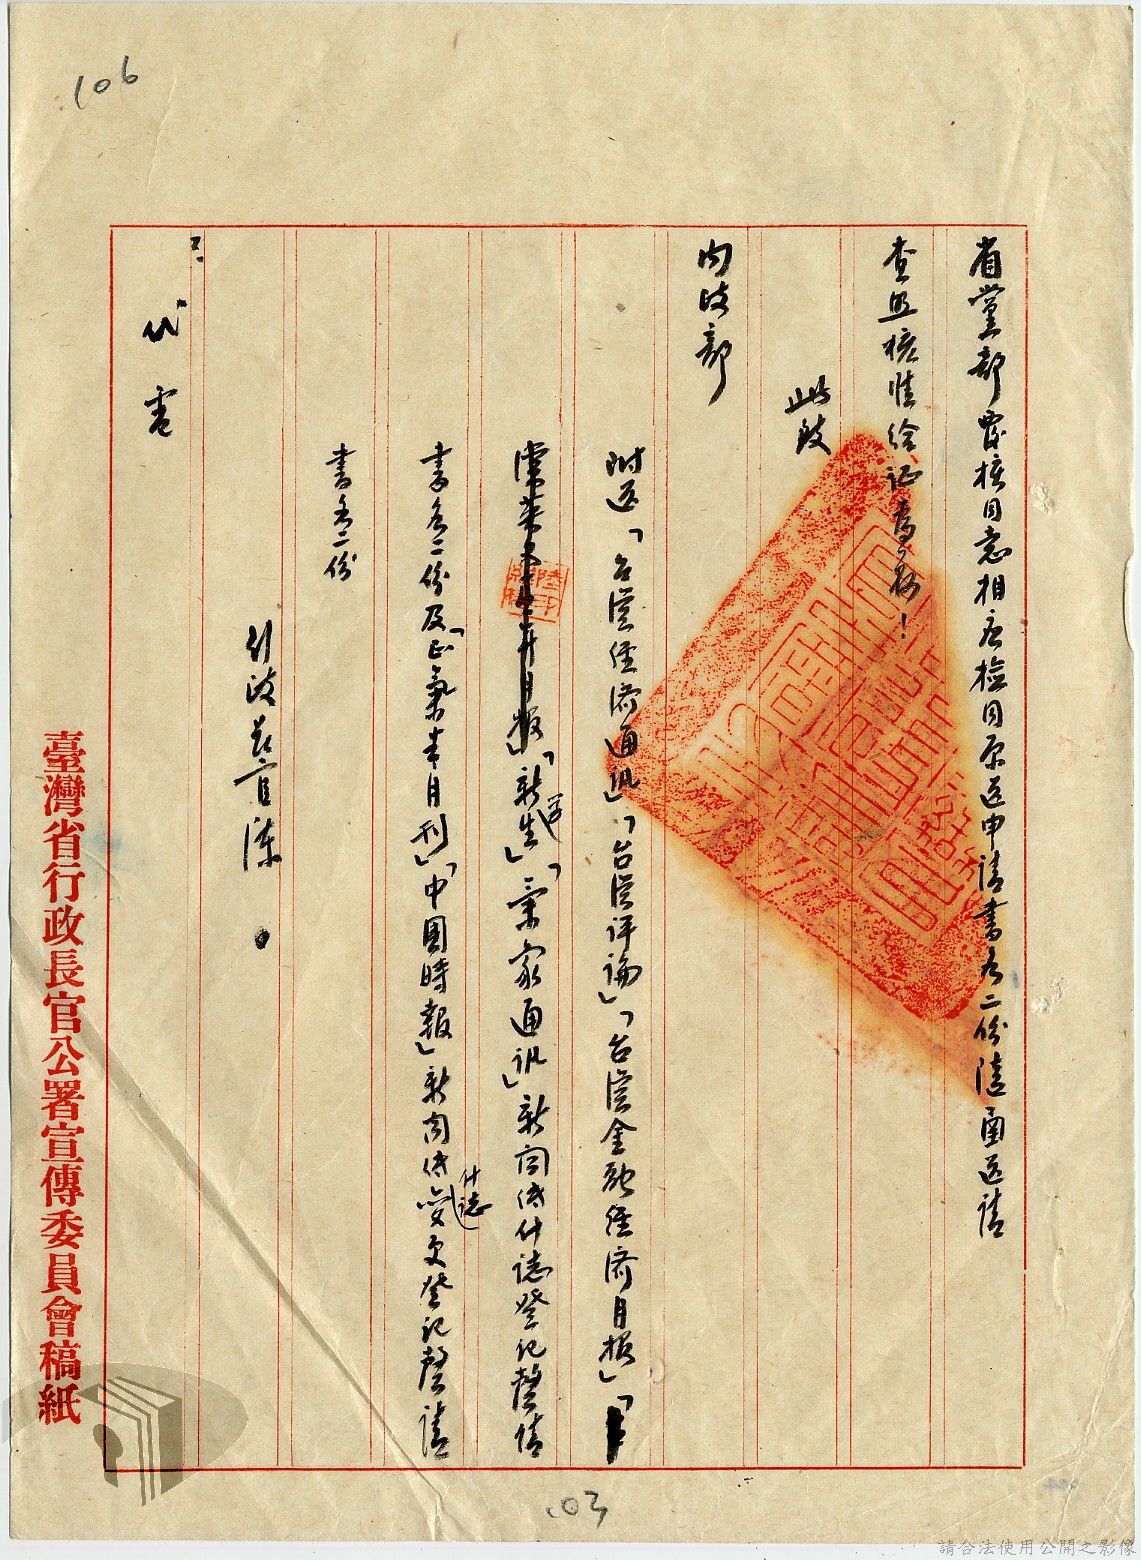 106
省黨部審核同意相應檢同原送申請書各二份隨函送請
查照核准給證為荷！
此致
內政部
附送「台灣經濟通訊」「台灣評論」「台灣金融經濟月報」「
月報」「新生」「業家通訊」新聞紙什誌登記聲請
書各二份及「正氣半月刊」「中國時報」新聞紙什誌變更登記聲請
書各二份
行政長官陳
二、
代電
臺灣省行政長官公署宣傳委員會稿紙
103
請合法使用公開之影像